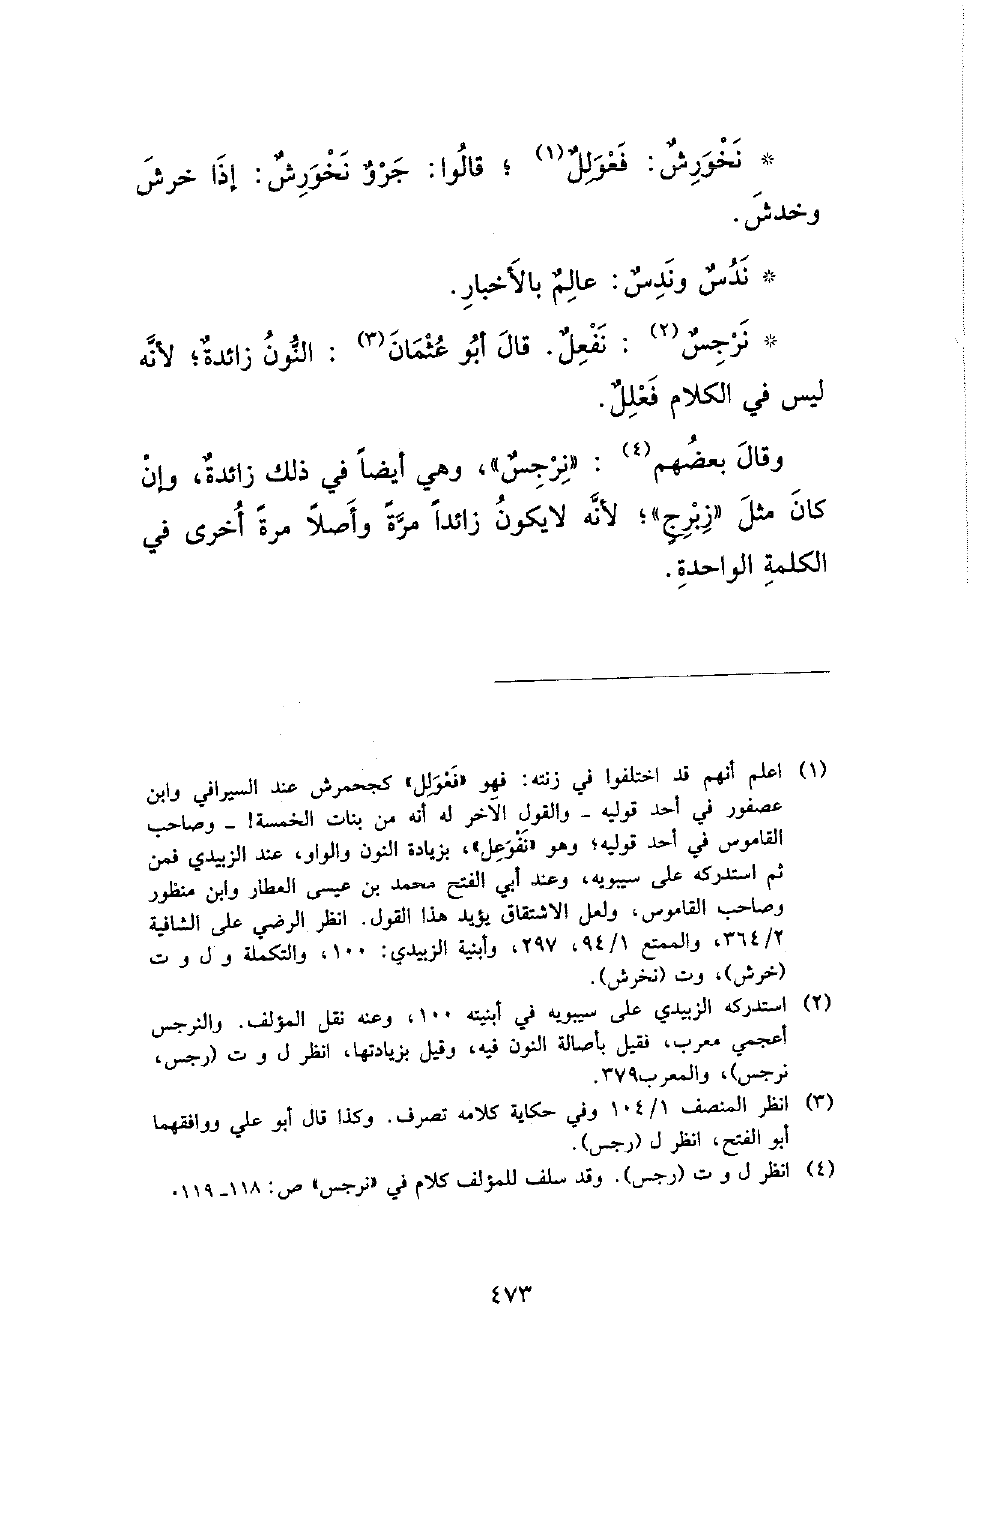 * نَخْوَرِشٌ: فَعْوَلِلٌ(١) ؛ قالُوا: جَرْوٌ نَخْوَرِشٌ: إذَا خرشَ
وخدشَ.
* نَدُسٌ ونَدِسٌ: عالِمٌ بالأَخبارِ.
* نَرْجِسٌ(٢) : نَفْعِلٌ. قالَ أبُو عُثْمَانَ(٣) : النُّونُ زائدةٌ؛ لأنَّه
ليس في الكلام فَعْلِلٌ.
وقالَ بعضُهم(٤) : «نِرْجِسٌ»، وهي أيضاً في ذلك زائدةٌ، وإنْ
كانَ مثلَ «زِبْرِجٍ»؛ لأنَّه لايكونُ زائداً مرَّةً وأَصلاً مرةً أُخرى في
الكلمةِ الواحدةِ.
(١) اعلم أنهم قد اختلفوا في زنته: فهو «فَعْوَلِل» كجحمرش عند السيرافي وابن
عصفور في أحد قوليه ـ والقول الآخر له أنه من بنات الخمسة! ـ وصاحب
القاموس في أحد قوليه؛ وهو «نَفْوَعِل»، بزيادة النون والواو، عند الزبيدي فمن
ثم استدركه على سيبويه، وعند أبي الفتح محمد بن عيسى العطار وابن منظور
وصاحب القاموس، ولعل الاشتقاق يؤيد هذا القول. انظر الرضي على الشافية
٣٦٤/٢، والممتع ٩٤/١، ٢٩٧، وأبنية الزبيدي: ١٠٠، والتكملة و ل و ت
(خرش)، وت (نخرش).
(٢) استدركه الزبيدي على سيبويه في أبنيته ١٠٠، وعنه نقل المؤلف. والنرجس
أعجمي معرب، فقيل بأصالة النون فيه، وقيل بزيادتها، انظر ل و ت (رجس،
نرجس)، والمعرب٣٧٩.
(٣) انظر المنصف ١٠٤/١ وفي حكاية كلامه تصرف. وكذا قال أبو علي ووافقهما
أبو الفتح، انظر ل (رجس).
(٤) انظر ل و ت (رجس). وقد سلف للمؤلف كلام في «نرجس» ص: ١١٨ـ ١١٩.
٤٧٣